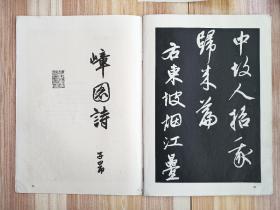 中故人招我
歸来篇
右東坡烟江疊
嶂图詩
子昂